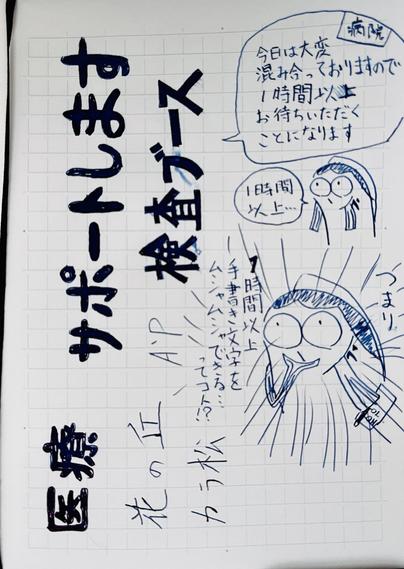 病院
今日は大変
混み合っておりますので
1時間以上
お待ちいただく
ことになります
1時間
以上…
つまり
1時間以上
手書き文字を
ムシャムシャできる…
ってコト!?
医療
サポートします
検査ブース
花の丘
カラ松